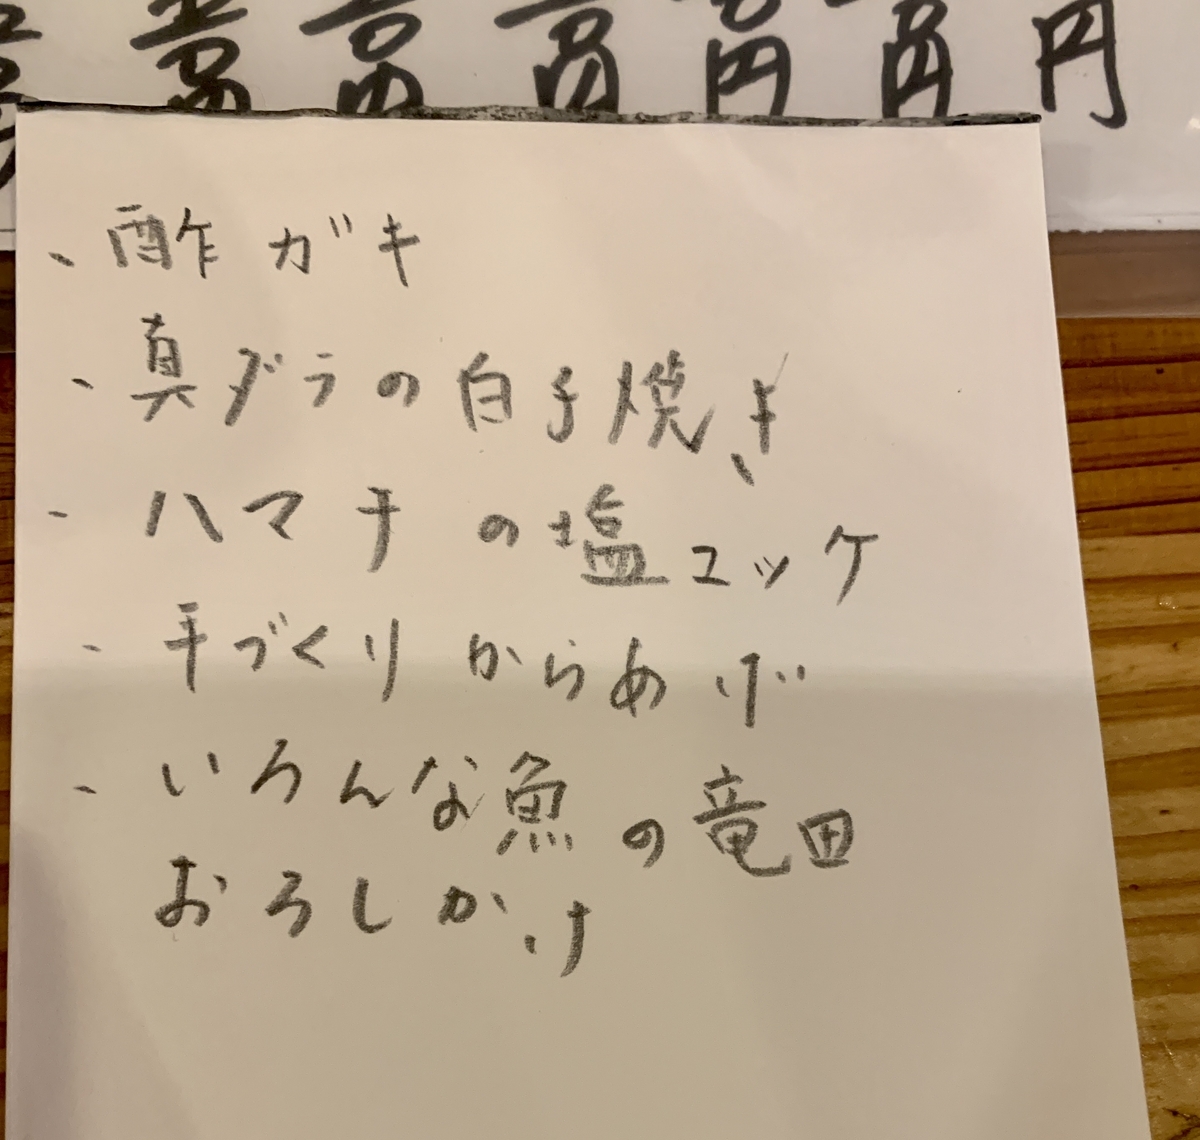 ・酢ガキ
・真ダラの白子焼き
・ハマチの塩ユッケ
・手づくりからあげ
・いろんな魚の竜田
おろしかけ
円 円 円